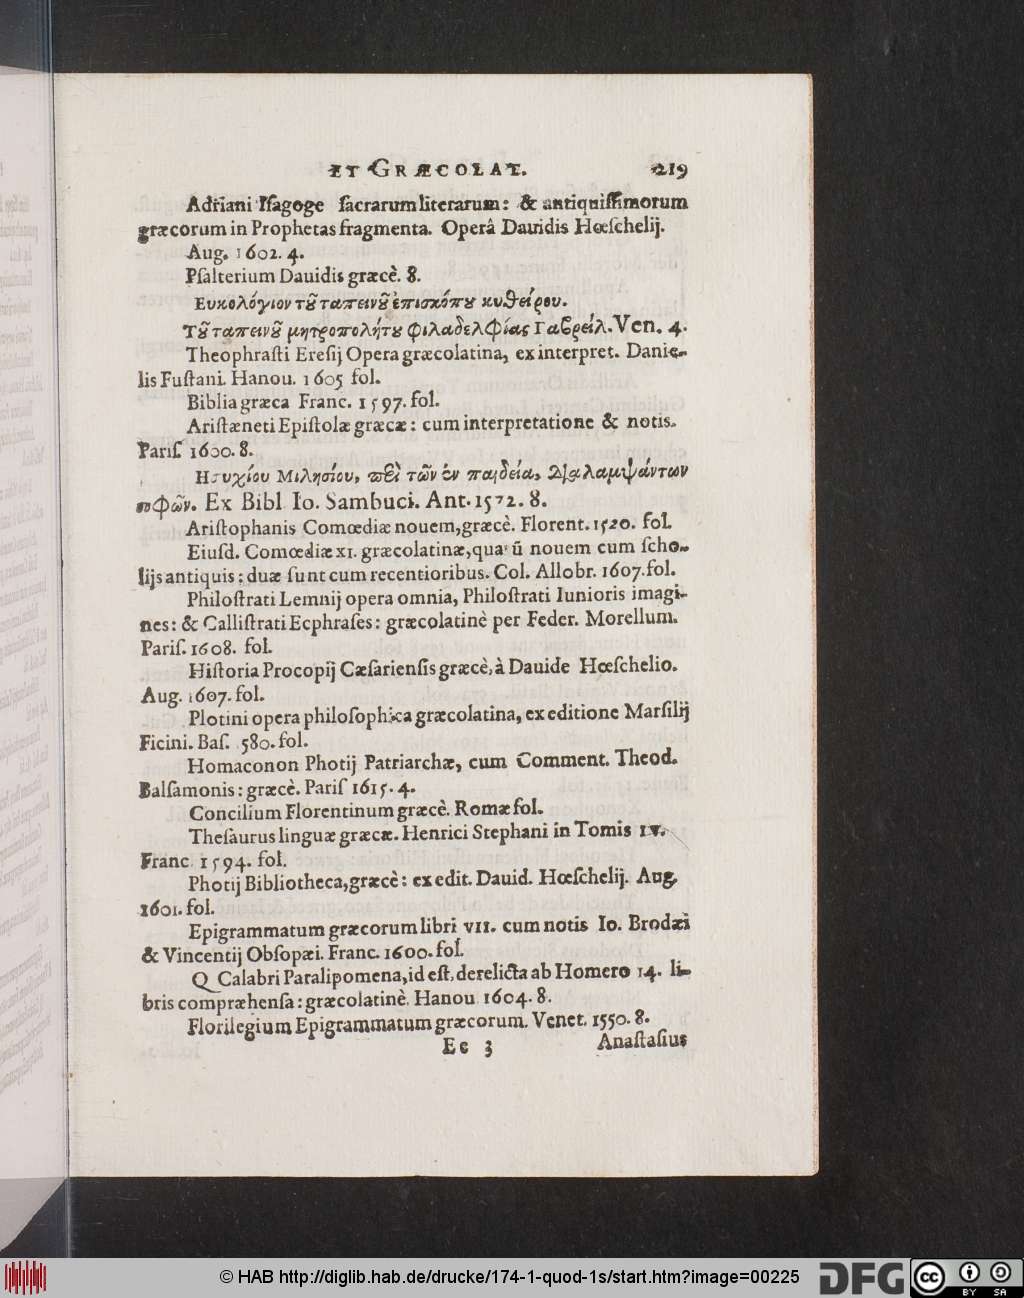 ET GRÆCOLAT. 219
Adriani Iſagoge ſacrarum literarum: & antiquiſſimorum
græcorum in Prophetas fragmenta. Operâ Dauidis Hœſchelij.
Aug. 1602. 4.
Pſalterium Dauidis græcè. 8.
Ευκολόγιον τȣ͂ ταπεινȣ͂ ἐπισκόπȣ κυθείρου.
Τȣ͂ ταπεινȣ͂ μητροπολήτȣ φιλαδελφίας Γαβρείλ. Ven. 4.
Theophraſti Ereſij Opera græcolatina, ex interpret. Danie-
lis Fuſtani. Hanou. 1605 fol.
Biblia græca Franc. 1597. fol.
Ariſtæneti Epiſtolæ græcæ: cum interpretatione & notis.
Pariſ. 1600. 8.
Ησυχίου Μιλησίου, περὶ τῶν ἐν παιδεία, διαλαμψάντων
σοφῶν. Ex Bibl. Io. Sambuci. Ant. 1572. 8.
Ariſtophanis Comœdiæ nouem, græcè. Florent. 1520. fol.
Eiuſd. Comœdiæ XI. græcolatinæ, quarũ nouem cum ſcho-
lijs antiquis: duæ ſunt cum recentioribus. Col. Allobr. 1607. fol.
Philoſtrati Lemnij opera omnia, Philoſtrati Iunioris imagi-
nes: & Calliſtrati Ecphraſes: græcolatinè per Feder. Morellum.
Pariſ. 1608. fol.
Hiſtoria Procopij Cæſarienſis græcè, à Dauide Hœſchelio.
Aug. 1607. fol.
Plotini opera philoſophica græcolatina, ex editione Marſilij
Ficini. Baſ. 580. fol.
Homaconon Photij Patriarchæ, cum Comment. Theod.
Balſamonis: græcè. Pariſ 1615. 4.
Concilium Florentinum græcè. Romæ fol.
Theſaurus linguæ græcæ. Henrici Stephani in Tomis IV.
Franc. 1594. fol.
Photij Bibliotheca, græcè: ex edit. Dauid. Hœſchelij. Aug.
1601. fol.
Epigrammatum græcorum libri VII. cum notis Io. Brodæi
& Vincentij Obſopæi. Franc. 1600. fol.
Q Calabri Paralipomena, id eſt, derelicta ab Homero 14. li-
bris compræhenſa: græcolatinè. Hanou 1604. 8.
Florilegium Epigrammatum græcorum. Venet. 1550. 8.
Ee 3 Anaſtaſius
© HAB http://diglib.hab.de/drucke/174-1-quod-1s/start.htm?image=00225
DFG cc BY SA